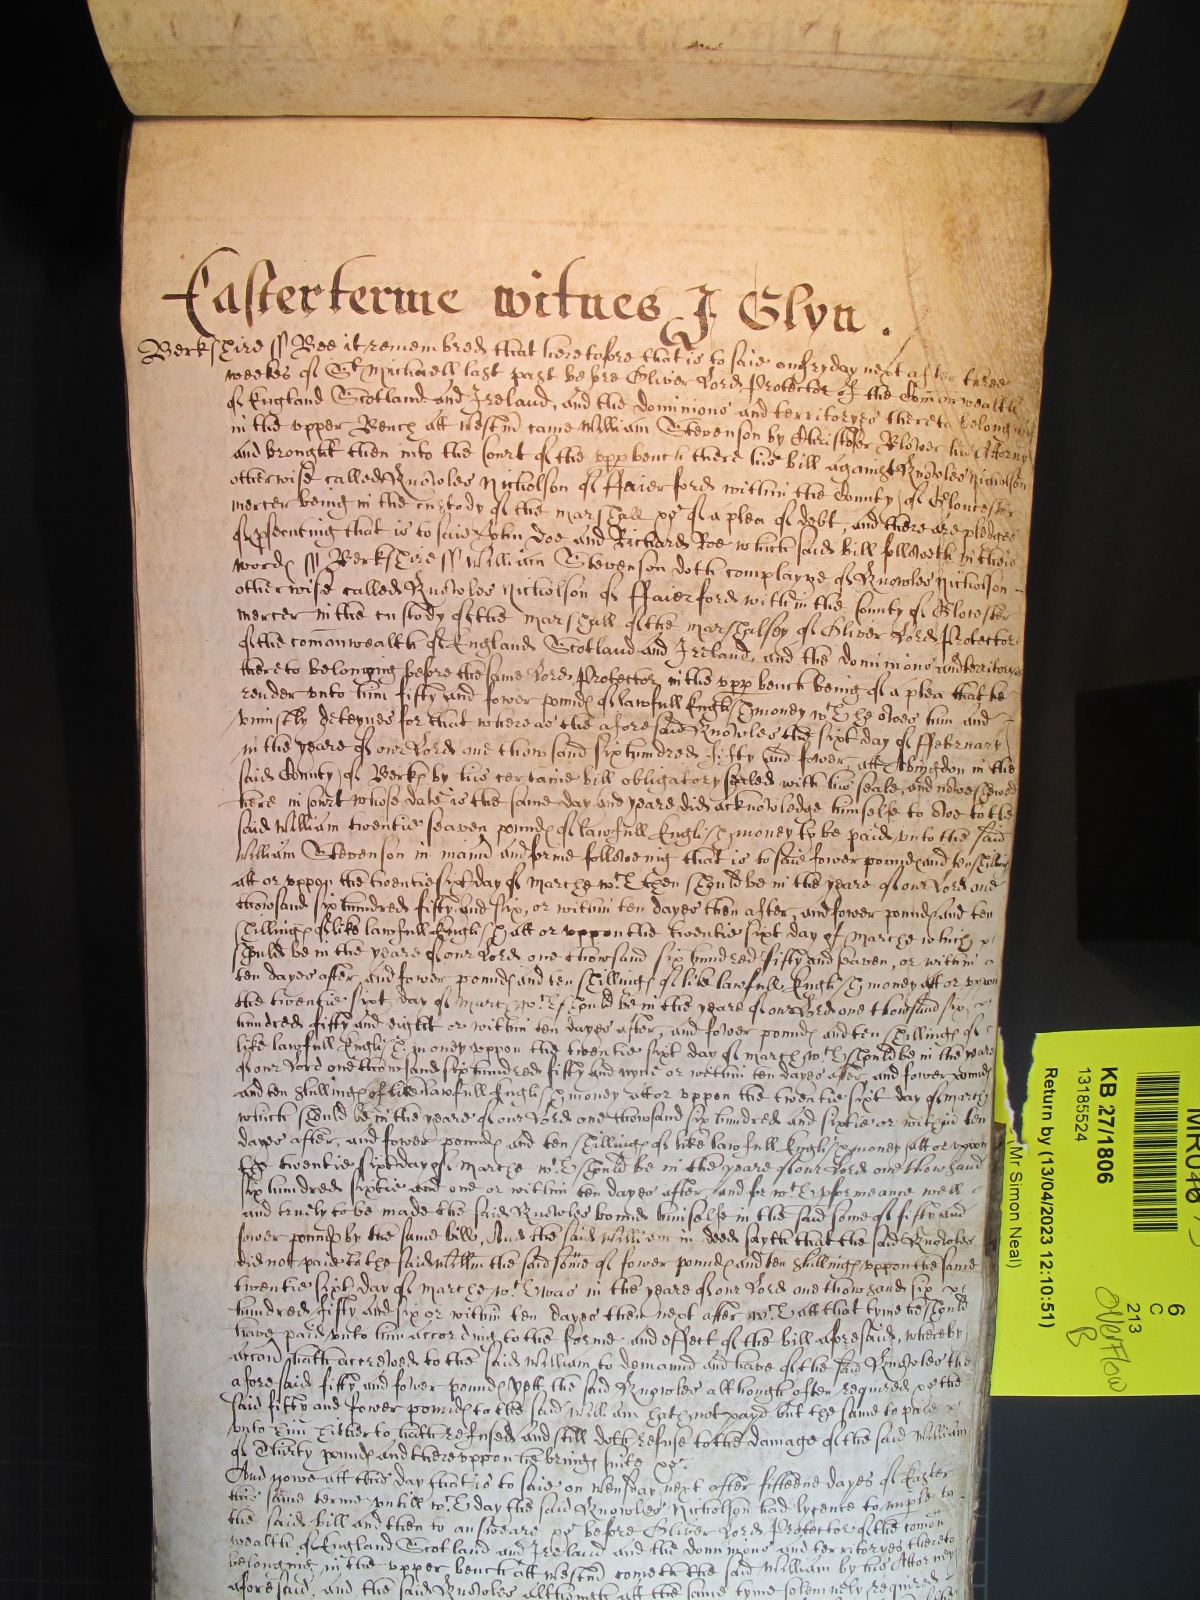 Easterterme witnes J Glyn .
Berkshire ss Bee it remembred that heretofore that is to saie on fryday next after three
weekes of St Michaell last past before Oliver Lord Protector of the Comonwealth
of England Scotland and Ireland, and the dominions and territoryes thereto belonging
in the upper Bench att Westmr came William Stevenson by Christofer Blower his Attorny
and brought then into the Court of the upp bench there his bill against Knowles Nicholson
otherwise called Knowles Nicholson of ffaierford within the County of Gloucester
mercer being in the custody of the marshall &c of a plea of debt, and there are pledges
of psecuting that is to saie John Doe and Richard Roe which said bill followeth in these
words ss Berkshire ss William Stevenson doth complayne of Knowles Nicholson
otherwise called Knowles Nicholson of ffaierford within the County of Glocester
mercer in the custody of the marshall of the marshalsey of Oliver Lord Protector
of the comonwealth of England Scotland and Ireland, and the dominions and territoryes
thereto belonging before the same Lord Protector in the upp bench being of a plea that he
render unto him fifty and fower pounds of lawfull English money wch he owes him and
uniustly deteynes for that whereas the aforesaid Knowles the sixt day of ffebruary
in the yeare of our Lord one thousand six hundred fifty and fower att Abingdon in the
said County of Berks by his certaine bill obligatory sealed with his seale, and nowe shewed
here in Court whose date is the same day and yeare did acknowledge himselfe to owe to the
said William twentie seaven pounds of lawfull English money to be paid unto the said
William Stevenson in mannr and forme followeing that is to saie fower pounds and ten shillings
att or uppon the twentie sixt day of Marche wch then should be in the yeare of our Lord one
thowsand six hundred fifty and six, or within ten dayes then after, and fower pounds and ten
shillings of like lawfull English att or uppon the twentie sixt day of Marche which
should be in the yeare of our Lord one thowsand six hundred fifty and seaven, or within
ten dayes after, and fower pounds and ten shillings of like lawfull English money att or uppon
the twentie sixt day of March wch should be in the yeare of our Lord one thowsand six
hundred fifty and eight or within ten dayes after, and fower pounds and ten shillings of
like lawfull English money uppon the twentie sixt day of march wch should be in the yeare
of our Lord one thowsand six hundred fifty and nyne or within ten dayes after and fower pounds
and ten shillings of like lawfull English money att or uppon the twentie sixt day of march
which should be in the yeare of our Lord one thowsand six hundred and sixtie or within ten
dayes after, and fower pounds and ten shillings of like lawfull English money att or uppon
the twentie sixt day of Marche wch should be in the yeare of our Lord one thowsand
six hundred sixtie and one or within ten dayes after, and for wch pformeance well
and truely to be made the said Knowles bound himselfe in the said some of fifty and
fower pounds by the same bill, And the said William in deed sayth that the said Knowles
did not paie to the said Willm the said some of fower pounds and ten shillings uppon the same
twentie sixt day of marche wch was in the yeare of our Lord one thowsand six
hundred fifty and six or within ten dayes then next after wch att that tyme he should
have paid unto him according to the forme and effect of the bill aforesaid, whereby
accon hath accrewed to the said William to demannd and have of the said Knowles the
aforesaid fifty and fower pounds yett the said Knowles although often required &c the
said fifty and fower pounds to the said William hath not payd but the same to paie
unto him hitherto hath refused and still doth refuse to the damage of the said William
of Thirty pounds and thereuppon he brings suite &c.
And nowe att this day that is to saie on Wensday next after fifteene dayes of Easter
this same terme untill wch day the said Knowles Nicholson had lycence to imple to
the said bill and then to answeare &c before Oliver Lord Protector of the comon
wealth of England Scotland and Ireland and the dominions and territoryes thereto
belonging in the upper bench att Westmr cometh the said William by his Attorney
aforesaid, and the said Knowles although att the same tyme solemnly required
KB 27/1806
13185524
Return by (13/04/2023 12:10:51)
(Mr Simon Neal)
6
C
213
Overflow
B